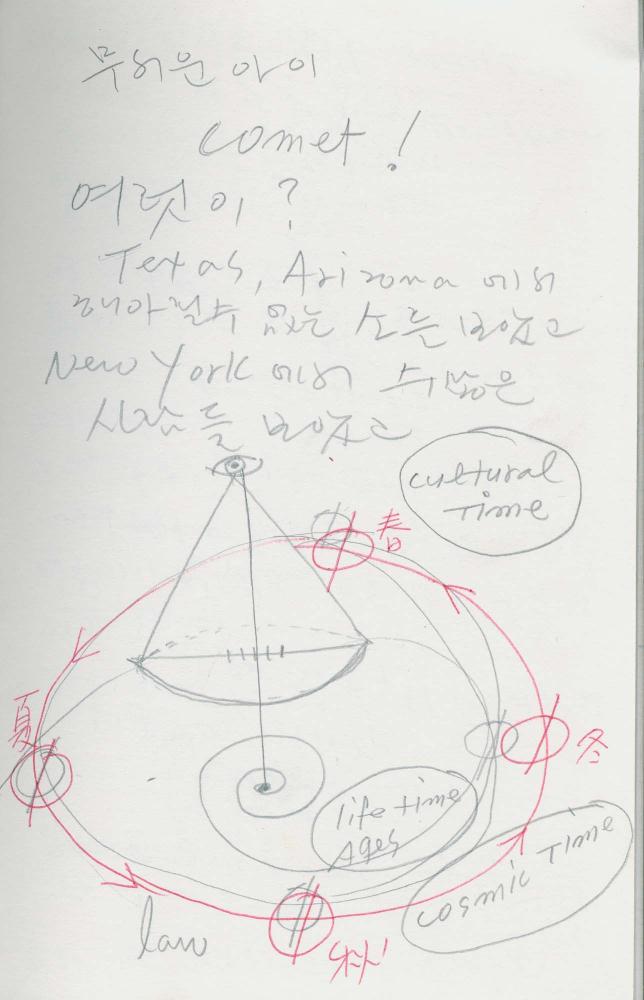 무서운 아이
comet !
여럿이 ?
Texas, Arizona 에서
헤아릴수 없는 소를 보았고
New York 에서 수많은
사람들 보았고
cultural
Time
春
夏
冬
life time
Ages
cosmic Time
law
秋